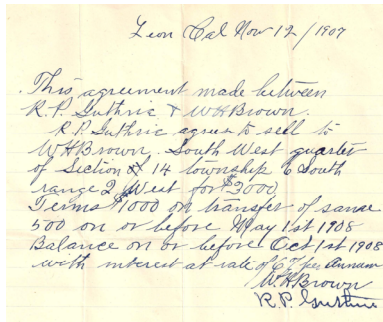 Leon Cal Nov 12/1907
This agreement made between
R.P. Guthrie & W H Brown.
R.P. Guthrie agrees to sell to
W H Brown. South West quarter
of Section 14 township 6 South
range 2 West for $2000
Terms $1000 on transfer of same
500 on or before May 1st 1908
Balance on or before Oct 1st 1908
with interest at rate of 6% per Annum
W.H Brown
R.P. Guthrie